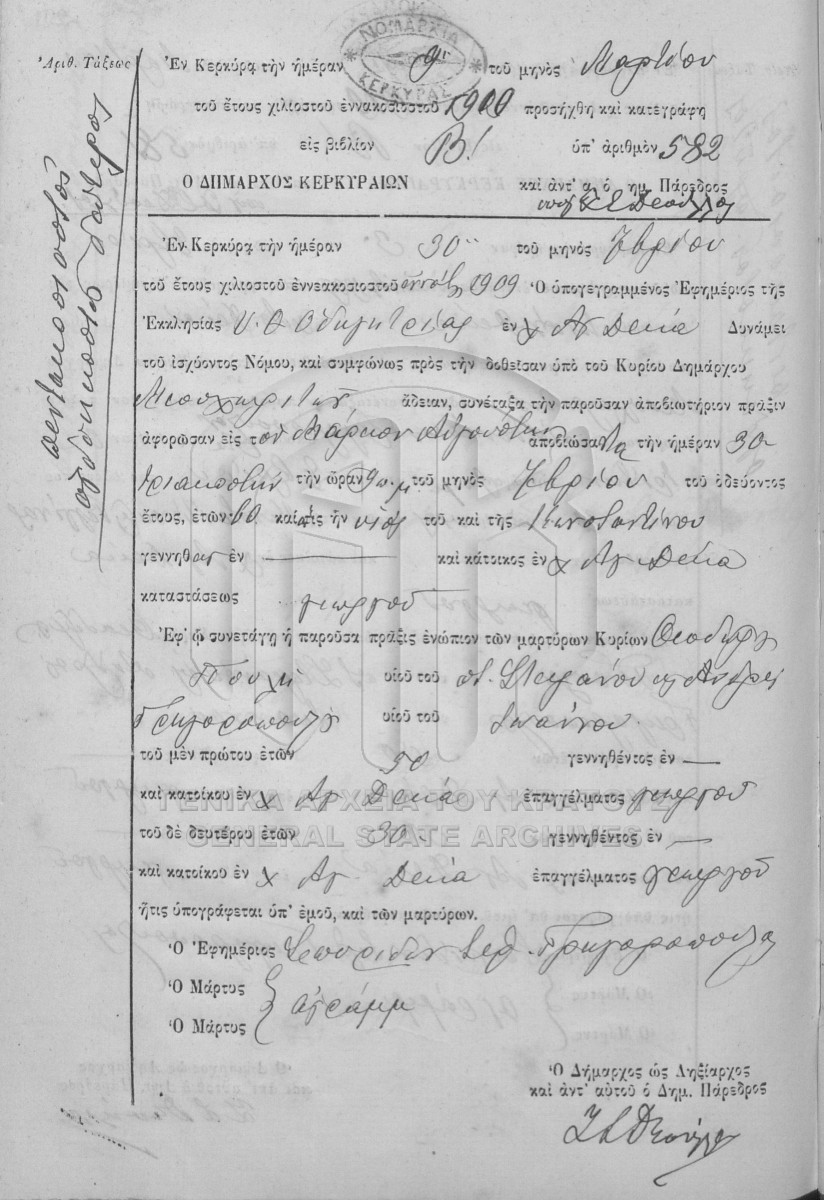 ΝΟΜΑΡΧΙΑ
ΚΕΡΚΥΡΑΣ
Ἀριθ. Τάξεως
πεντακοσιοστὸς
ὀγδοηκοστὸς δεύτερος
Ἐν Κερκύρᾳ τὴν ἡμέραν 9ην τοῦ μηνὸς Μαρτίου
τοῦ ἔτους χιλιοστοῦ ἐννακοσιοστοῦ 1909 προσήχθη καὶ κατεγράφη
εἰς βιβλίον Β! ὑπ' ἀριθμὸν 582
Ο ΔΗΜΑΡΧΟΣ ΚΕΡΚΥΡΑΙΩΝ καὶ ἀντ' α. ὁ δημ. Πάρεδρος
Ἐν Κερκύρᾳ τὴν ἡμέραν 30 τοῦ μηνὸς
τοῦ ἔτους χιλιοστοῦ ἐννεακοσιοστοῦ ἐννάτου 1909 Ὁ ὑπογεγραμμένος Ἐφημέριος τῆς
Ἐκκλησίας Υ. Θ Οδηγητρίας ἐν χ Αγ Δέκα Δυνάμει
τοῦ ἰσχύοντος Νόμου, καὶ συμφώνως πρὸς τὴν δοθεῖσαν ὑπὸ τοῦ Κυρίου Δημάρχου
Μεσοχωριτῶν ἄδειαν, συνέταξα τὴν παροῦσαν ἀποβιωτήριον πρᾶξιν
ἀφορῶσαν εἰς τον Μάρκον Αὐγουστῖνον ἀποβιώσαντα τὴν ἡμέραν 30
τριακοστὴν τὴν ὥραν 9 π.μ. τοῦ μηνὸς τοῦ ὁδεύοντος
ἔτους, ἐτῶν 60 καὶ τις ἦν υἱὸς τοῦ καὶ τῆς Κωνσταντίνου
γεννηθεις ἐν — καὶ κάτοικος ἐν χ Αγ. Δέκα
καταστάσεως γεωργοῦ
Ἐφ' ᾧ συνετάγη ἡ παροῦσα πρᾶξις ἐνώπιον τῶν μαρτύρων Κυρίων Θεοδώρου
υἱοῦ τοῦ π. Στεφάνου κ Ανδρέα
Γρηγορόπουλου υἱοῦ τοῦ Ιωάννου
τοῦ μὲν πρώτου ἐτῶν 50 γεννηθέντος ἐν —
καὶ κατοίκου ἐν χ Αγ Δέκα ἐπαγγέλματος γεωργοῦ
ΓΕΝΙΚΑ ΑΡΧΕΙΑ ΤΟΥ ΚΡΑΤΟΥΣ
τοῦ δὲ δευτέρου ἐτῶν 30 γεννηθέντος ἐν —
GENERAL STATE ARCHIVES
καὶ κατοίκου ἐν χ Αγ. Δέκα ἐπαγγέλματος γεωργοῦ
ἥτις ὑπογράφεται ὑπ' ἐμοῦ, καὶ τῶν μαρτύρων.
Ὁ Ἐφημέριος Σπυρίδων Γρηγορόπουλος
Ὁ Μάρτυς
ἀγράμμ
Ὁ Μάρτυς
Ὁ Δήμαρχος ὡς Ληξίαρχος
καὶ ἀντ' αὐτοῦ ὁ Δημ. Πάρεδρος